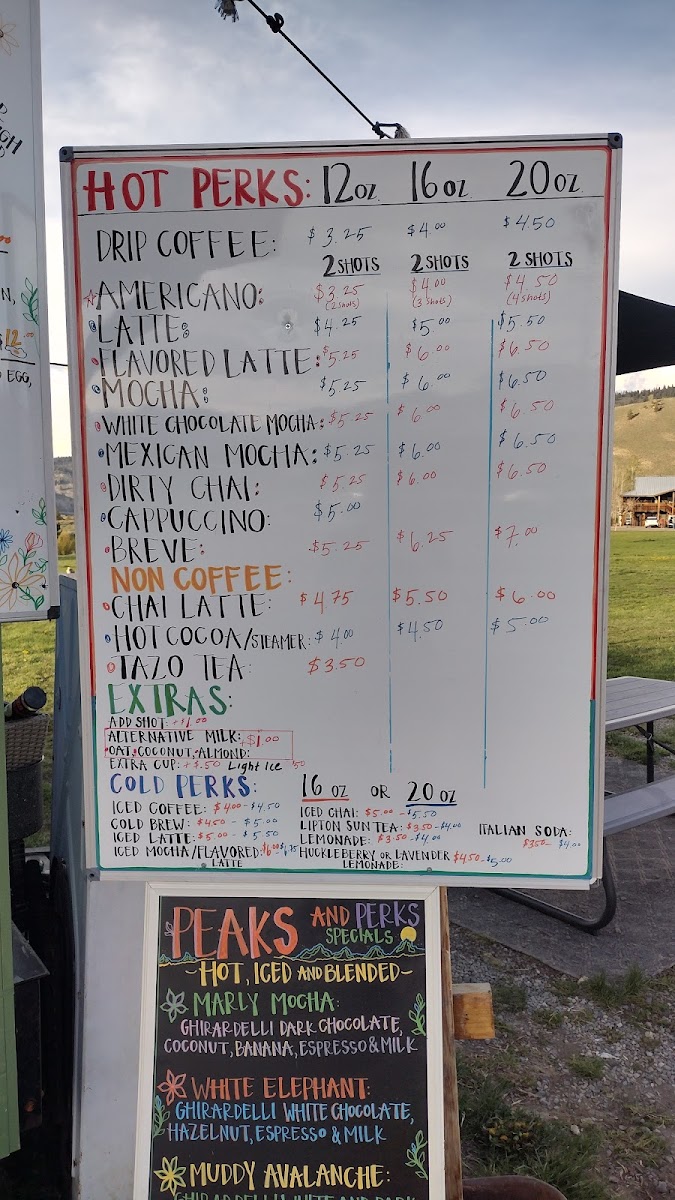 HOT PERKS: 12oz. 16oz. 20oz.
DRIP COFFEE: $3.25 $4.00 $4.50
2 SHOTS 2 SHOTS 2 SHOTS
AMERICANO: $3.25 $4.00 $4.50
(2 shots) (3 shots) (4 shots)
LATTE: $4.25 $5.00 $5.50
FLAVORED LATTE: $5.25 $6.00 $6.50
MOCHA: $5.25 $6.00 $6.50
WHITE CHOCOLATE MOCHA: $5.25 $6.00 $6.50
MEXICAN MOCHA: $5.25 $6.00 $6.50
DIRTY CHAI: $5.25 $6.00 $6.50
CAPPUCCINO: $5.00
BREVE: $5.25 $6.25 $7.00
NON COFFEE:
CHAI LATTE: $4.75 $5.50 $6.00
HOT COCOA/STEAMER: $4.00 $4.50 $5.00
TAZO TEA: $3.50
EXTRAS:
ADD SHOT: +$1.00
ALTERNATIVE MILK: +$1.00
OAT, COCONUT, ALMOND:
EXTRA CUP: +$.50 Light Ice .50
COLD PERKS: 16 OZ OR 20 OZ
ICED COFFEE: $4.00 - $4.50
COLD BREW: $4.50 - $5.00
ICED LATTE: $5.00 - $5.50
ICED MOCHA/FLAVORED LATTE: $6.00
ICED CHAI: $5.00 - $5.50
LIPTON SUN TEA: $3.50 - $4.00
LEMONADE: $3.50 - $4.00
HUCKLEBERRY OR LAVENDER LEMONADE: $4.50 - $5.00
ITALIAN SODA:
$3.50 - $4.00
PEAKS AND PERKS
SPECIALS
~HOT, ICED AND BLENDED~
MARLY MOCHA:
GHIRARDELLI DARK CHOCOLATE,
COCONUT, BANANA, ESPRESSO & MILK
WHITE ELEPHANT:
GHIRARDELLI WHITE CHOCOLATE,
HAZELNUT, ESPRESSO & MILK
MUDDY AVALANCHE:
GHIRARDELLI WHITE AND DARK